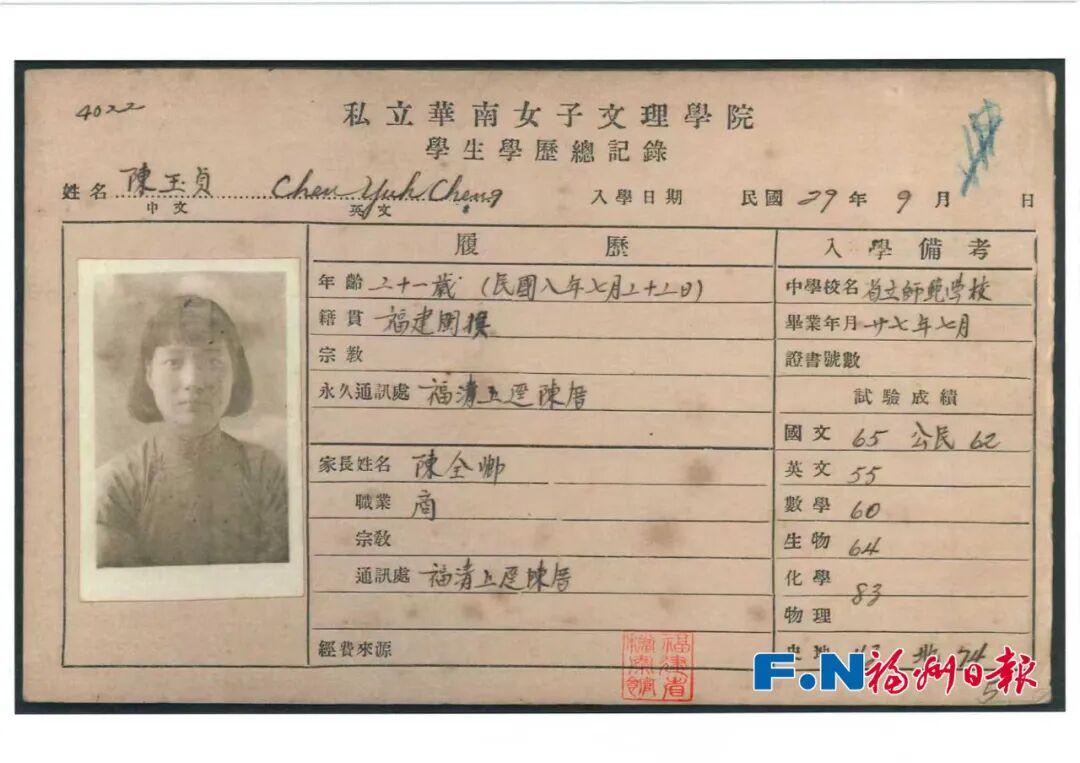 4022
私立華南女子文理學院
學生學歷總記錄
姓名 陳玉貞 Chen Yuh Cheng 入學日期 民國 29 年 9 月 日
中文 英文
履歷
年齡 二十一歲 (民國八年七月二十二日)
籍貫 福建閩
宗教
永久通訊處 福清上逕陳厝
家長姓名 陳全卿
職業 商
宗教
通訊處 福清上逕陳厝
經費來源
入學備考
中學校名 省立師範学校
畢業年月 廿七年七月
證書號數
試驗成績
國文 65 公民 62
英文 55
數學 60
生物 64
化學 83
物理
史地 74
福建省檔案館
F.N福州日報
5